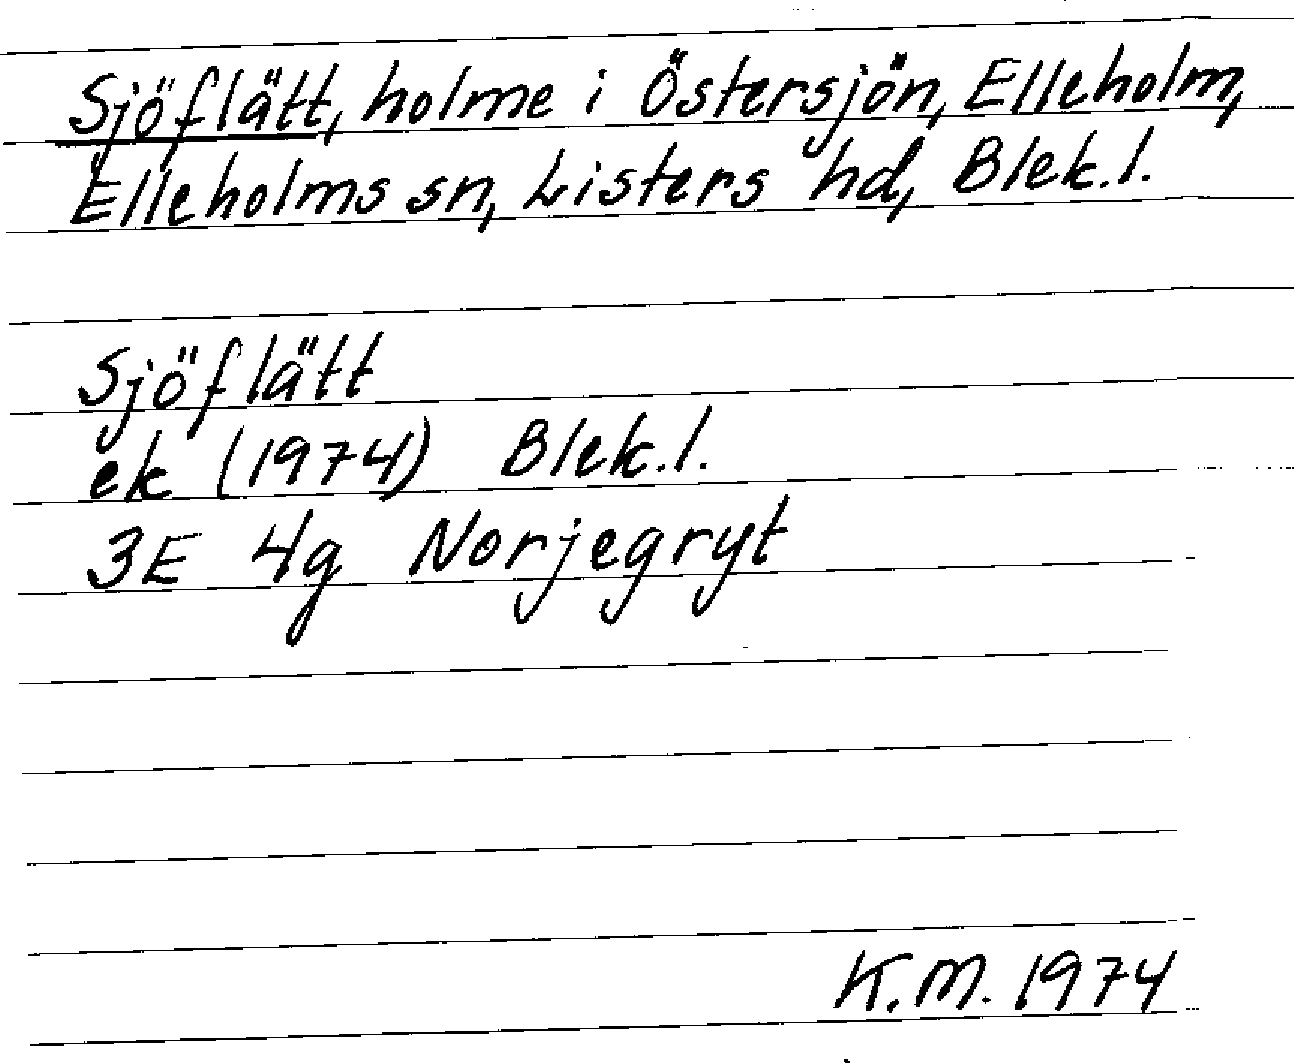 Sjöflätt, holme i Östersjön, Elleholm,
Elleholms sn, Listers hd, Blek.l.
Sjöflätt
ek (1974) Blek.l.
3E 4g Norjegryt
K.M. 1974